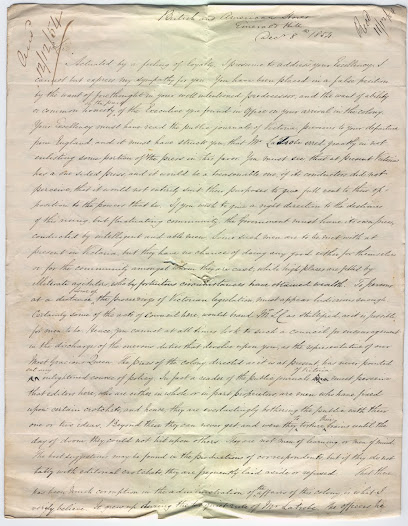 British and American Hotel
Emerald Hill
Decr 8th 1854
Actuated by a feeling of loyalty I presume to address your Excellency. I
cannot but express my sympathy for you. You have been placed in a false position
by the want of forethought in your well intentioned predecessor, and the want of ability
& common honesty, of the Executive you found in Office on your arrival in the colony.
Your Excellency must have read the public journals of Victoria previous to your departure
from England and it must have struck you that Mr Latrobe erred greatly in not
enlisting some portion of the press in his favor. You must see that at present Victoria
has a one sided press, and it would be a reasonable one, if its conductors did not
perceive, that it would not entirely suit their purposes to give full vent to their op-
position to the powers that be. If you wish to give a right direction to the destinies
of this rising, but fluctuating community, the Government must have its own press,
conducted by intelligent and able men. Some such men are to be met with at
present in Victoria, but they have no chance of doing any good either for themselves
or for the community amongst whom they are cast, while high places are filled by
illiterate agitators who by fortuitous circumstances have attained wealth. To persons
at a distance, the proceedings of Victorian legislation must appear ludicrous enough.
Certainly some of the acts of Council here would
for men to be. Hence you cannot at all times look to such a council for encouragement
in the discharge of the onerous duties that devolve upon you, as the representative of our
Most Gracious Queen. The press of the colony directed as it is at present, has never pointed
out any enlightened course of policy. In fact a reader of the public journals of Victoria must perceive
that editors here, who are either in whole or in part proprietors are men who have fixed
upon certain crotchets and hence, they are everlastingly bothering the public with their
one or two ideas. Beyond these they can never get and were they to their brains until the
day of doom they could not hit upon others. They are not men of learning or men of mind.
The best suggestions may be found in the productions of correspondents but if they do not
tally with editorial crotchets they are frequently laid aside or refused. That there
has been much corruption in the administration of the affairs of the colony is what I
verily believe. It grew up during the of Mr Latrobe. The offices he